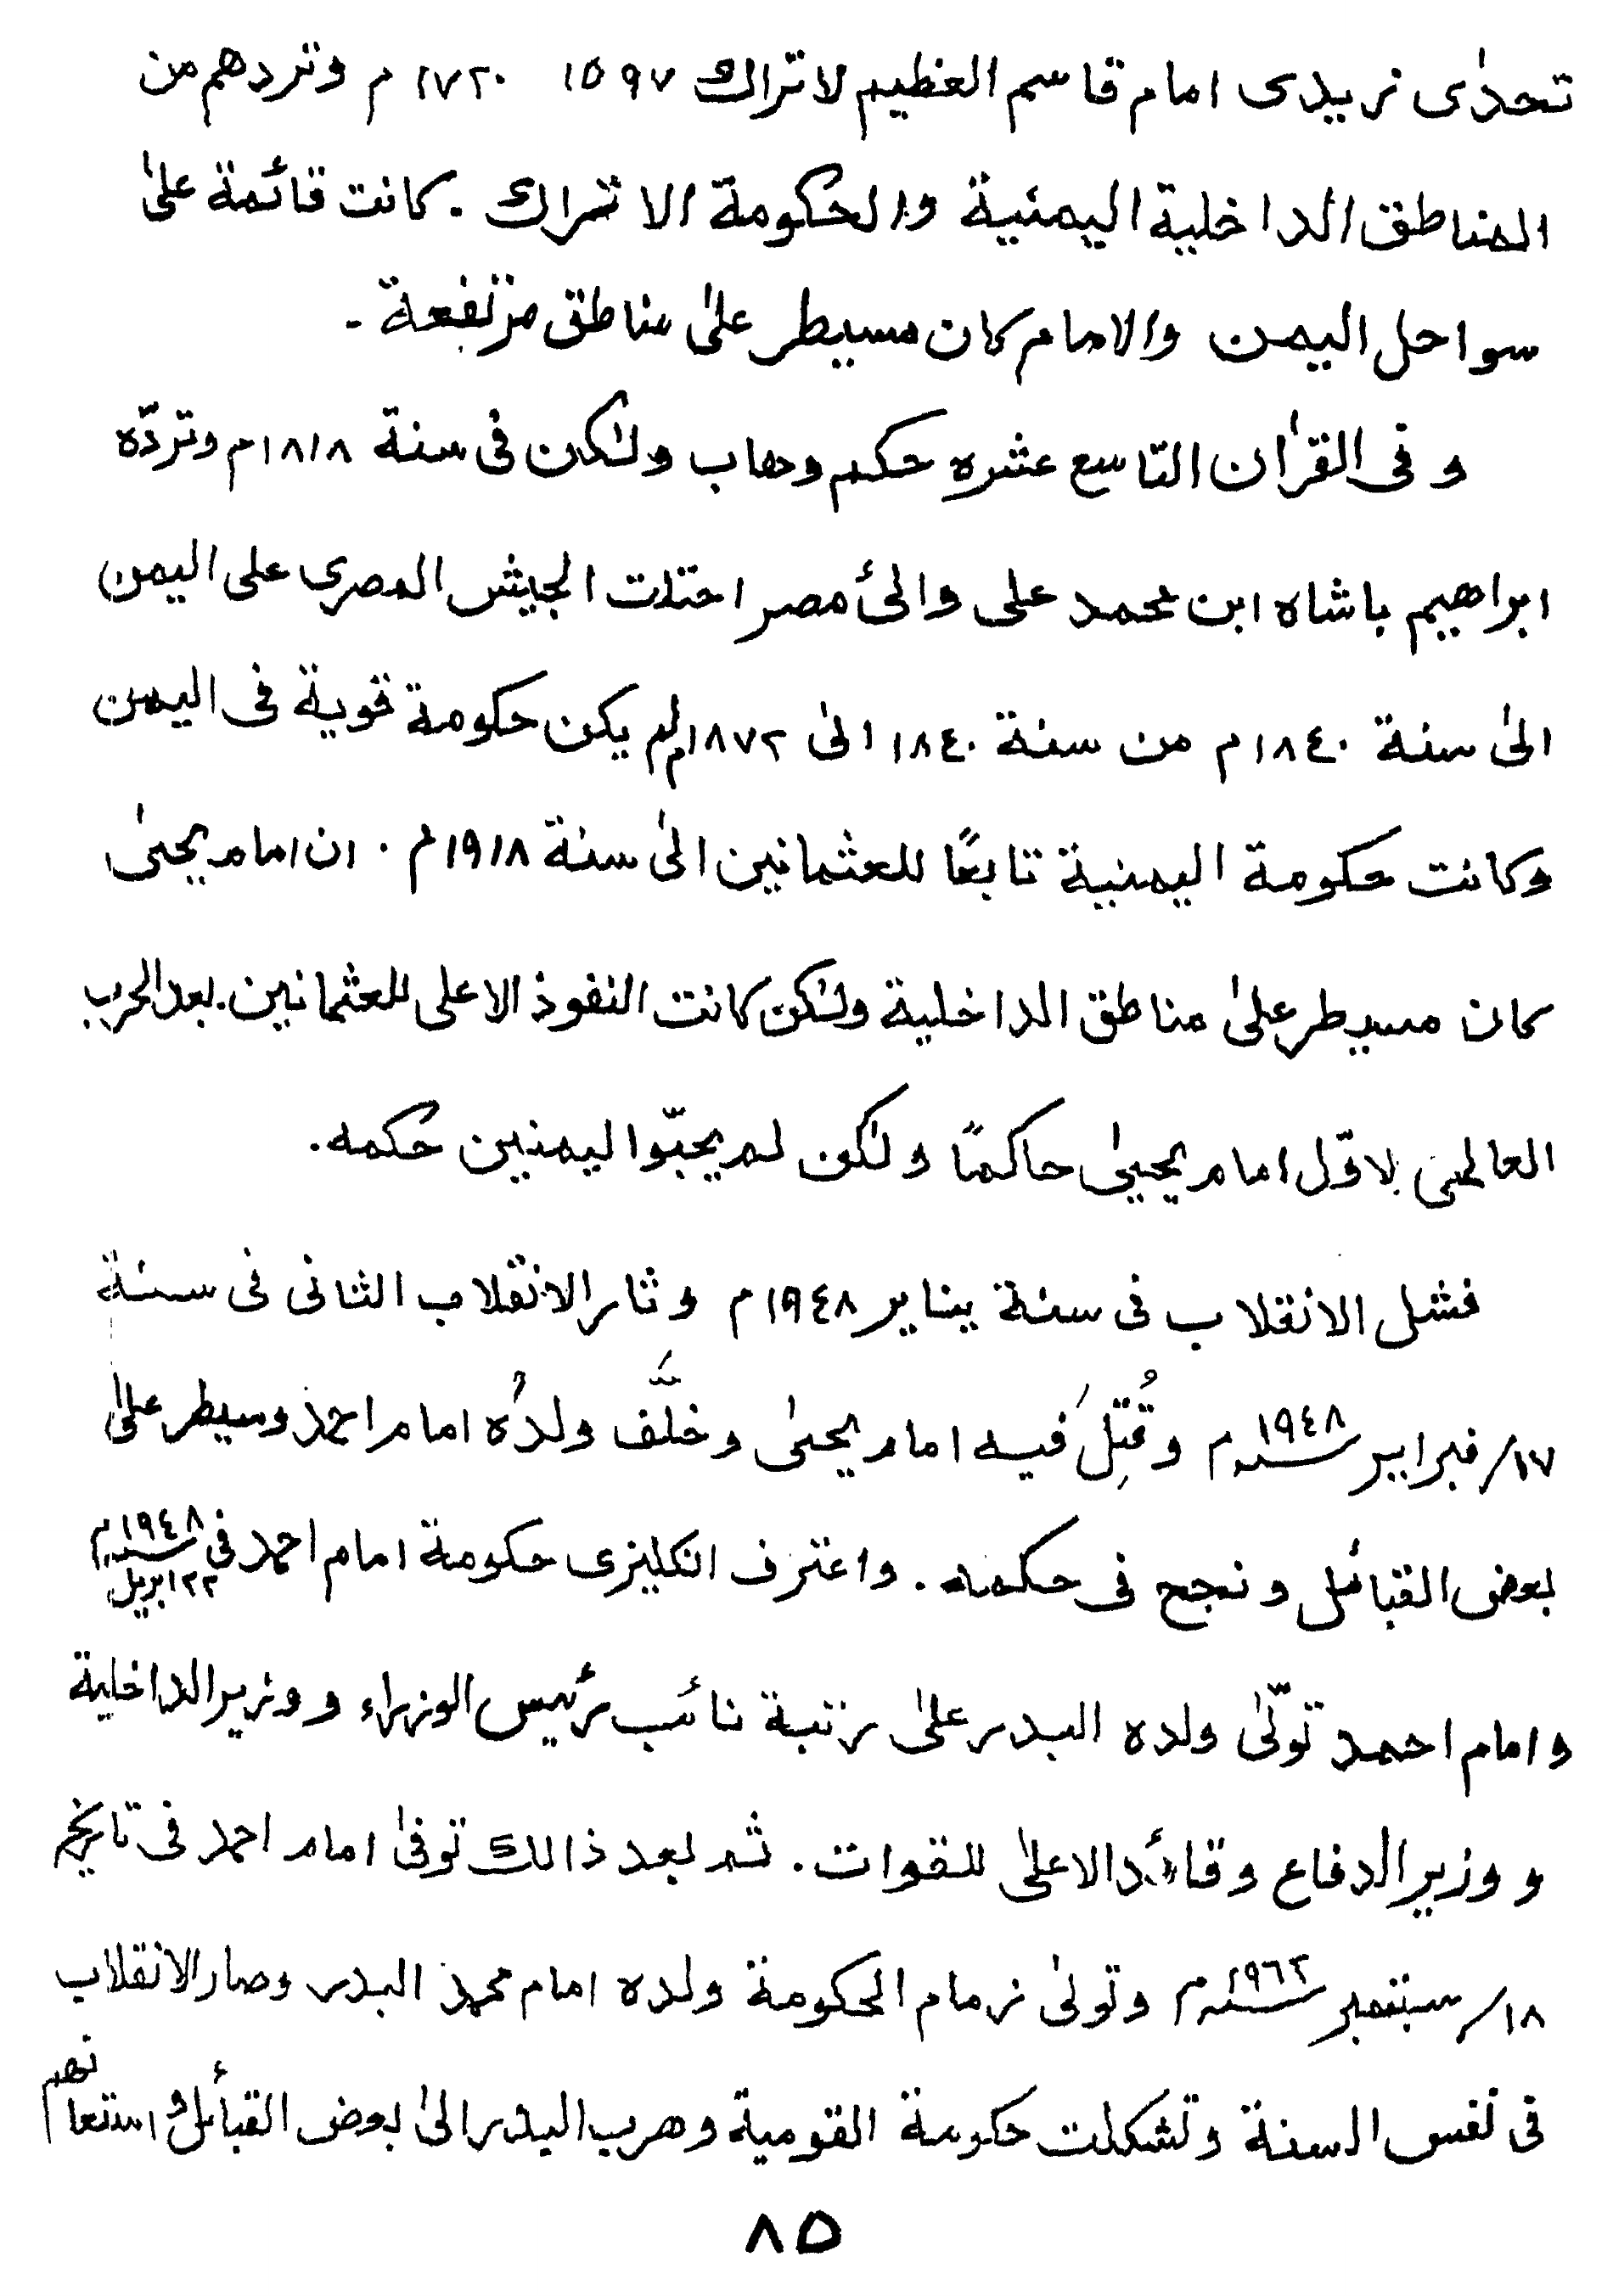 تحدٰى زيدى امام قاسم العظيم لاتراك ١٥٩٧ ١٧٢٠ م وتردهم من
المناطق الداخلية اليمنية والحكومة الاتراك . كانت قائمة علىٰ
سواحل اليمن والامام كان مسيطر علىٰ مناطق مرتفعة -
و فى القرٰان التاسع عشره حكم وهاب ولٰكن فى سنة ١٨١٨م وتردّه
ابراهيم باشاه ابن محمد على والئ مصر احتلت الجيش المصرى على اليمن
الىٰ سنة ١٨٤٠م من سنة ١٨٤٠ الىٰ ١٨٧٢م لم يكن حكومة قوية فى اليمن
وكانت حكومة اليمنية تابعًا للعثمانين الىٰ سنة ١٩١٨م . ان امام يحيىٰ
كان مسيطر علىٰ مناطق الداخلية ولٰكن كانت النفوذ الاعلى للعثمانين . بعد الحرب
العالمى لاوّل امام يحيىٰ حاكمًا ولٰكن لم يحبّوا اليمنين حُكمه .
فشل الانقلاب فى سنة يناير ١٩٤٨م و ثار الانقلاب الثانى فى سنة
١٧/ فبرايير ١٩٤٨م وقُتِلَ فيه امام يحيىٰ وخلَّف ولدُه امام احمد وسيطر علىٰ
بعض القبائل و نجح فى حكمه . واعترف انكليزى حكومة امام احمد فى ١٩٤٨م ٢٢ ابريل
وامام احمد تولّىٰ ولده البدر علىٰ رتبة نائب رئيس الوزراء و وزير الداخلية
و وزير الدفاع و قائد الاعلىٰ للقوات . ثم بعد ذالك توفىٰ امام احمد فى تاريخ
١٨/ سبتمبر ١٩٦٢م وتولىٰ زمام الحكومة ولده امام محمد البدر وصار الانقلاب
فى نفس السنة وتشكلت حكومة القومية وهرب البدر الىٰ بعض القبائل و استعانهم
٨٥